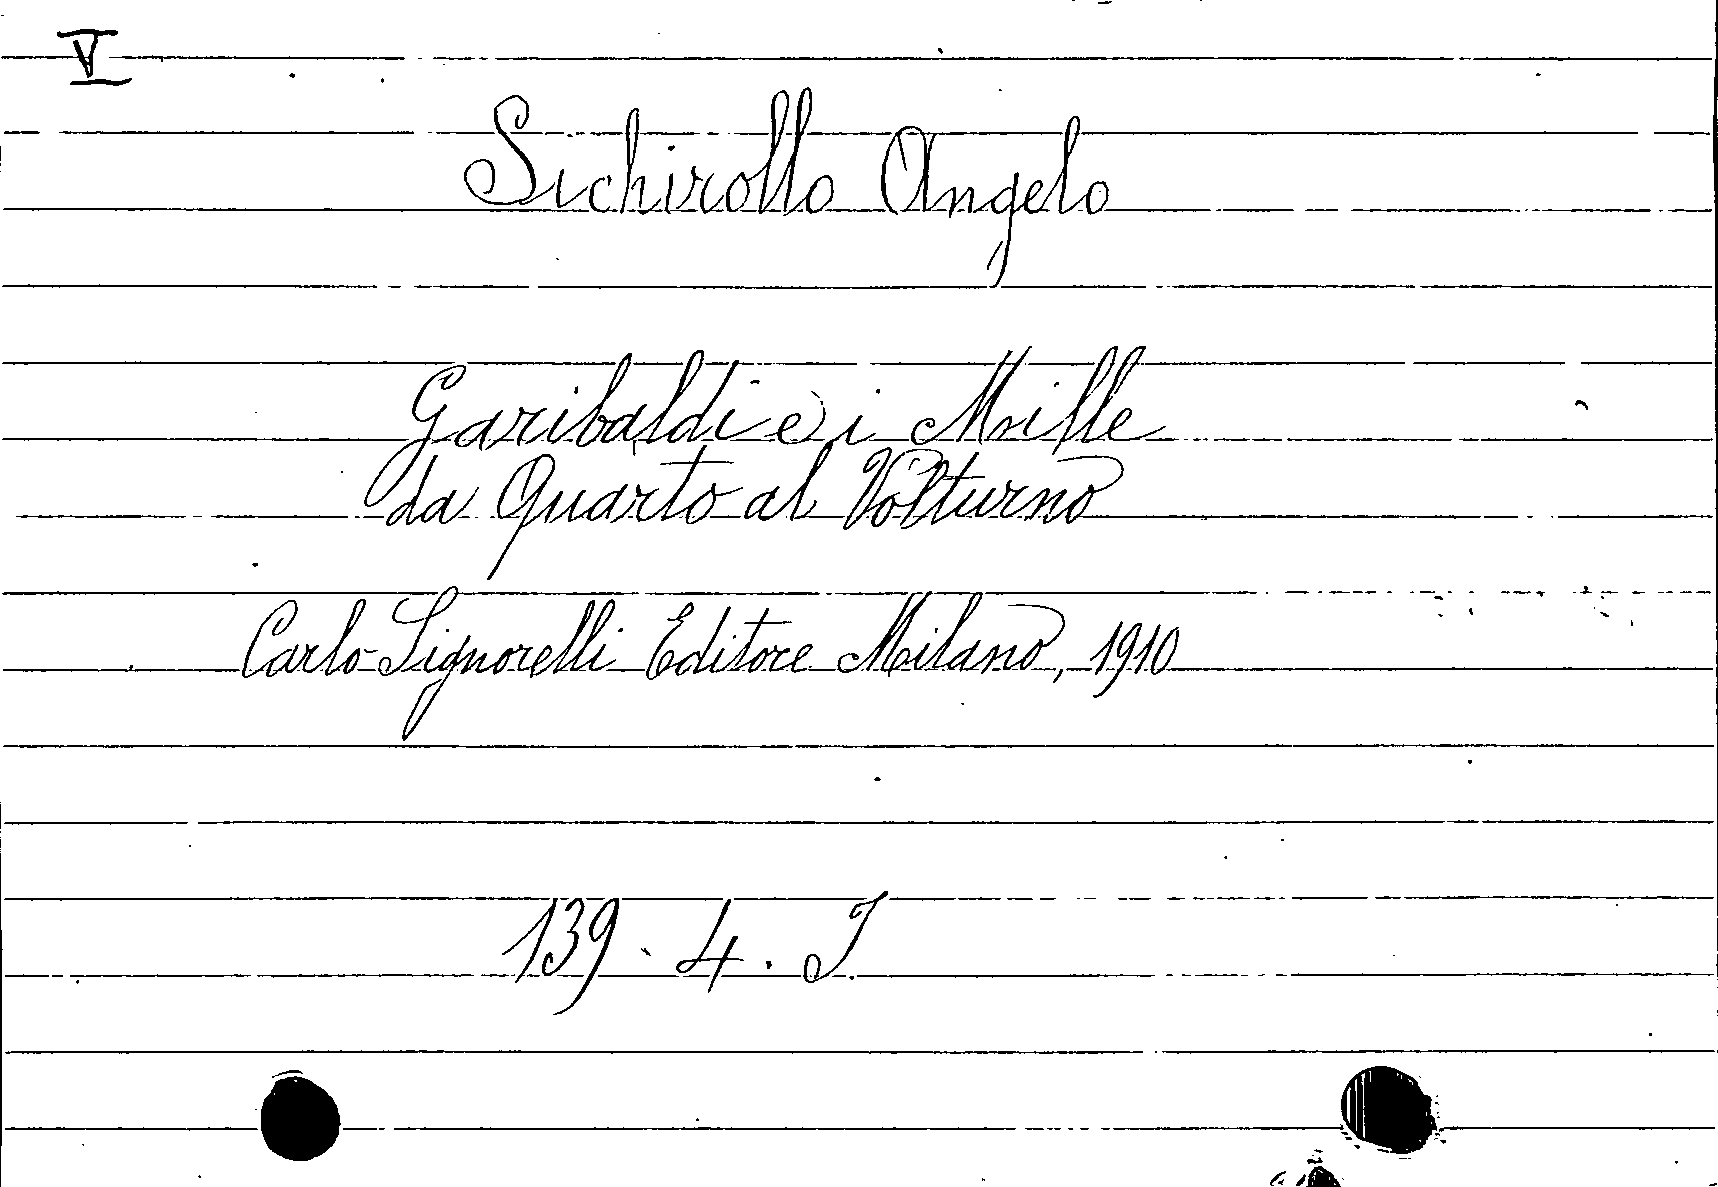 V
Sichirollo Angelo
Garibaldi e i Mille
da Quarto al Volturno
Carlo Signorelli Editore Milano, 1910
139 · 4 . I